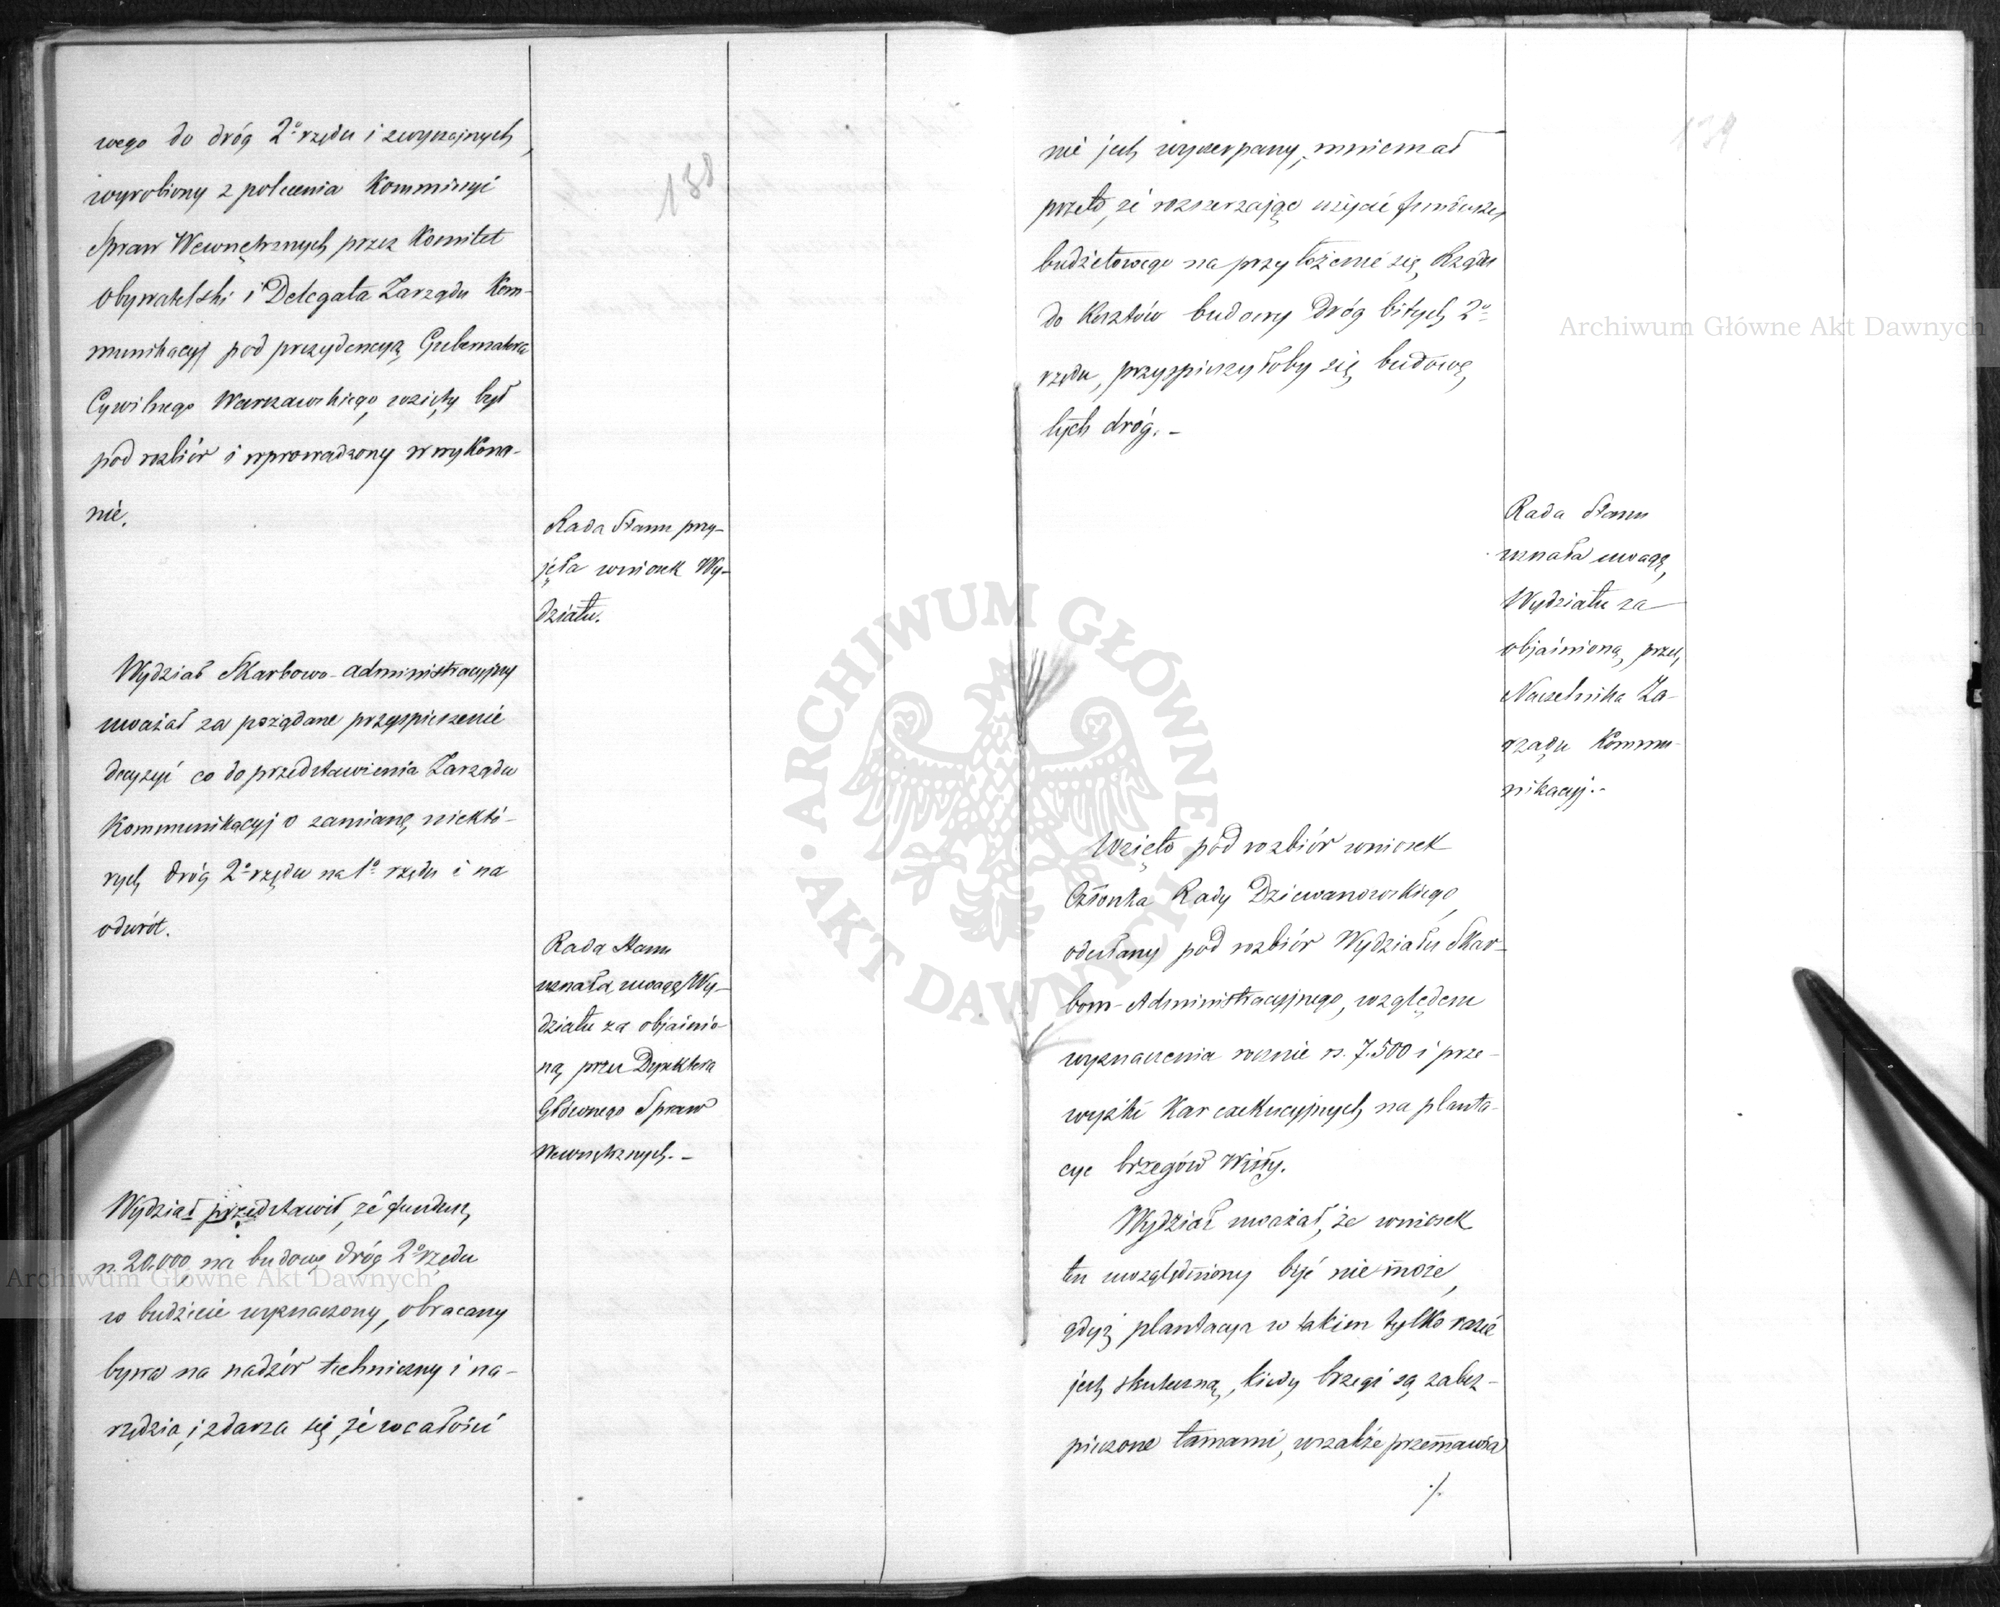 138
wego do dróg 2o rzędu i zwyczajnych,
wyrobiony z polecenia Kommissyi
Spraw Wewnętrznych przez Komitet
Obywatelski i Delegata Zarządu Kom-
munikacyj pod prezydencyą Gubernatora
Cywilnego Warszawskiego, wzięty był
pod rozbiór i wprowadzony w wykona-
nie.
Rada Stanu przy-
jęła wniosek Wy-
działu.
Wydział Skarbowo-Administracyjny
uważał za pożądane przyspieszenie
decyzyi co do przedstawienia Zarządu
Kommunikacyj o zamianę niektó-
rych dróg 2o rzędu na 1o rzędu i na
odwrót.
Rada Stanu
uznała uwagę Wy-
działu za objaśnio-
ną przez Dyrektora
Głównego Spraw
Wewnętrznych. -
Wydział przedstawił, że fundusz
rs. 20.000 na budowę dróg 2o rzędu
w budżecie wyznaczony, obracany
bywa na nadzór techniczny i na-
rzędzia, i zdarza się, że w całości
139
nie jest wyczerpany, mniemał
przeto, że rozszerzając użycie funduszu
budżetowego na przyłożenie się Rządu
do kosztów budowy dróg bitych 2o
rzędu, przyspieszyłoby się budowę
tych dróg. -
Rada Stanu
uznała uwagę
Wydziału za
objaśnioną przez
Naczelnika Za-
rządu Kommu-
nikacyj. -
Wzięto pod rozbiór wniosek
Członka Rady Dziewanowskiego,
odesłany pod rozbiór Wydziału Skar-
bowo-Administracyjnego, względem
wyznaczenia rocznie rs. 7.500 i prze-
wyżki kar exekucyjnych na planta-
cye brzegów Wisły.
Wydział uważał, że wniosek
ten uwzględniony być nie może,
gdyż plantacya w takim tylko razie
jest skuteczną, kiedy brzegi są zabez-
pieczone tamami, wszakże przemawia
./.
ARCHIWUM GŁÓWNE AKT DAWNYCH
Archiwum Główne Akt Dawnych
Archiwum Główne Akt Dawnych